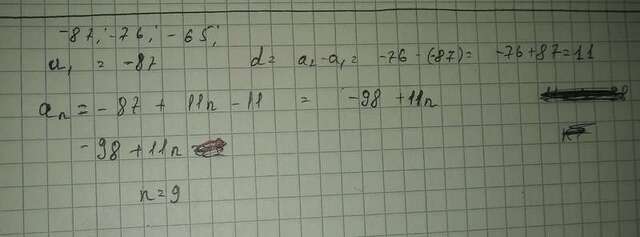 -87; -76; -65;
a₁ = -87 d = a₂ - a₁ = -76 - (-87) = -76 + 87 = 11
aₙ = -87 + 11n - 11 = -98 + 11n
-98 + 11n
n = 9